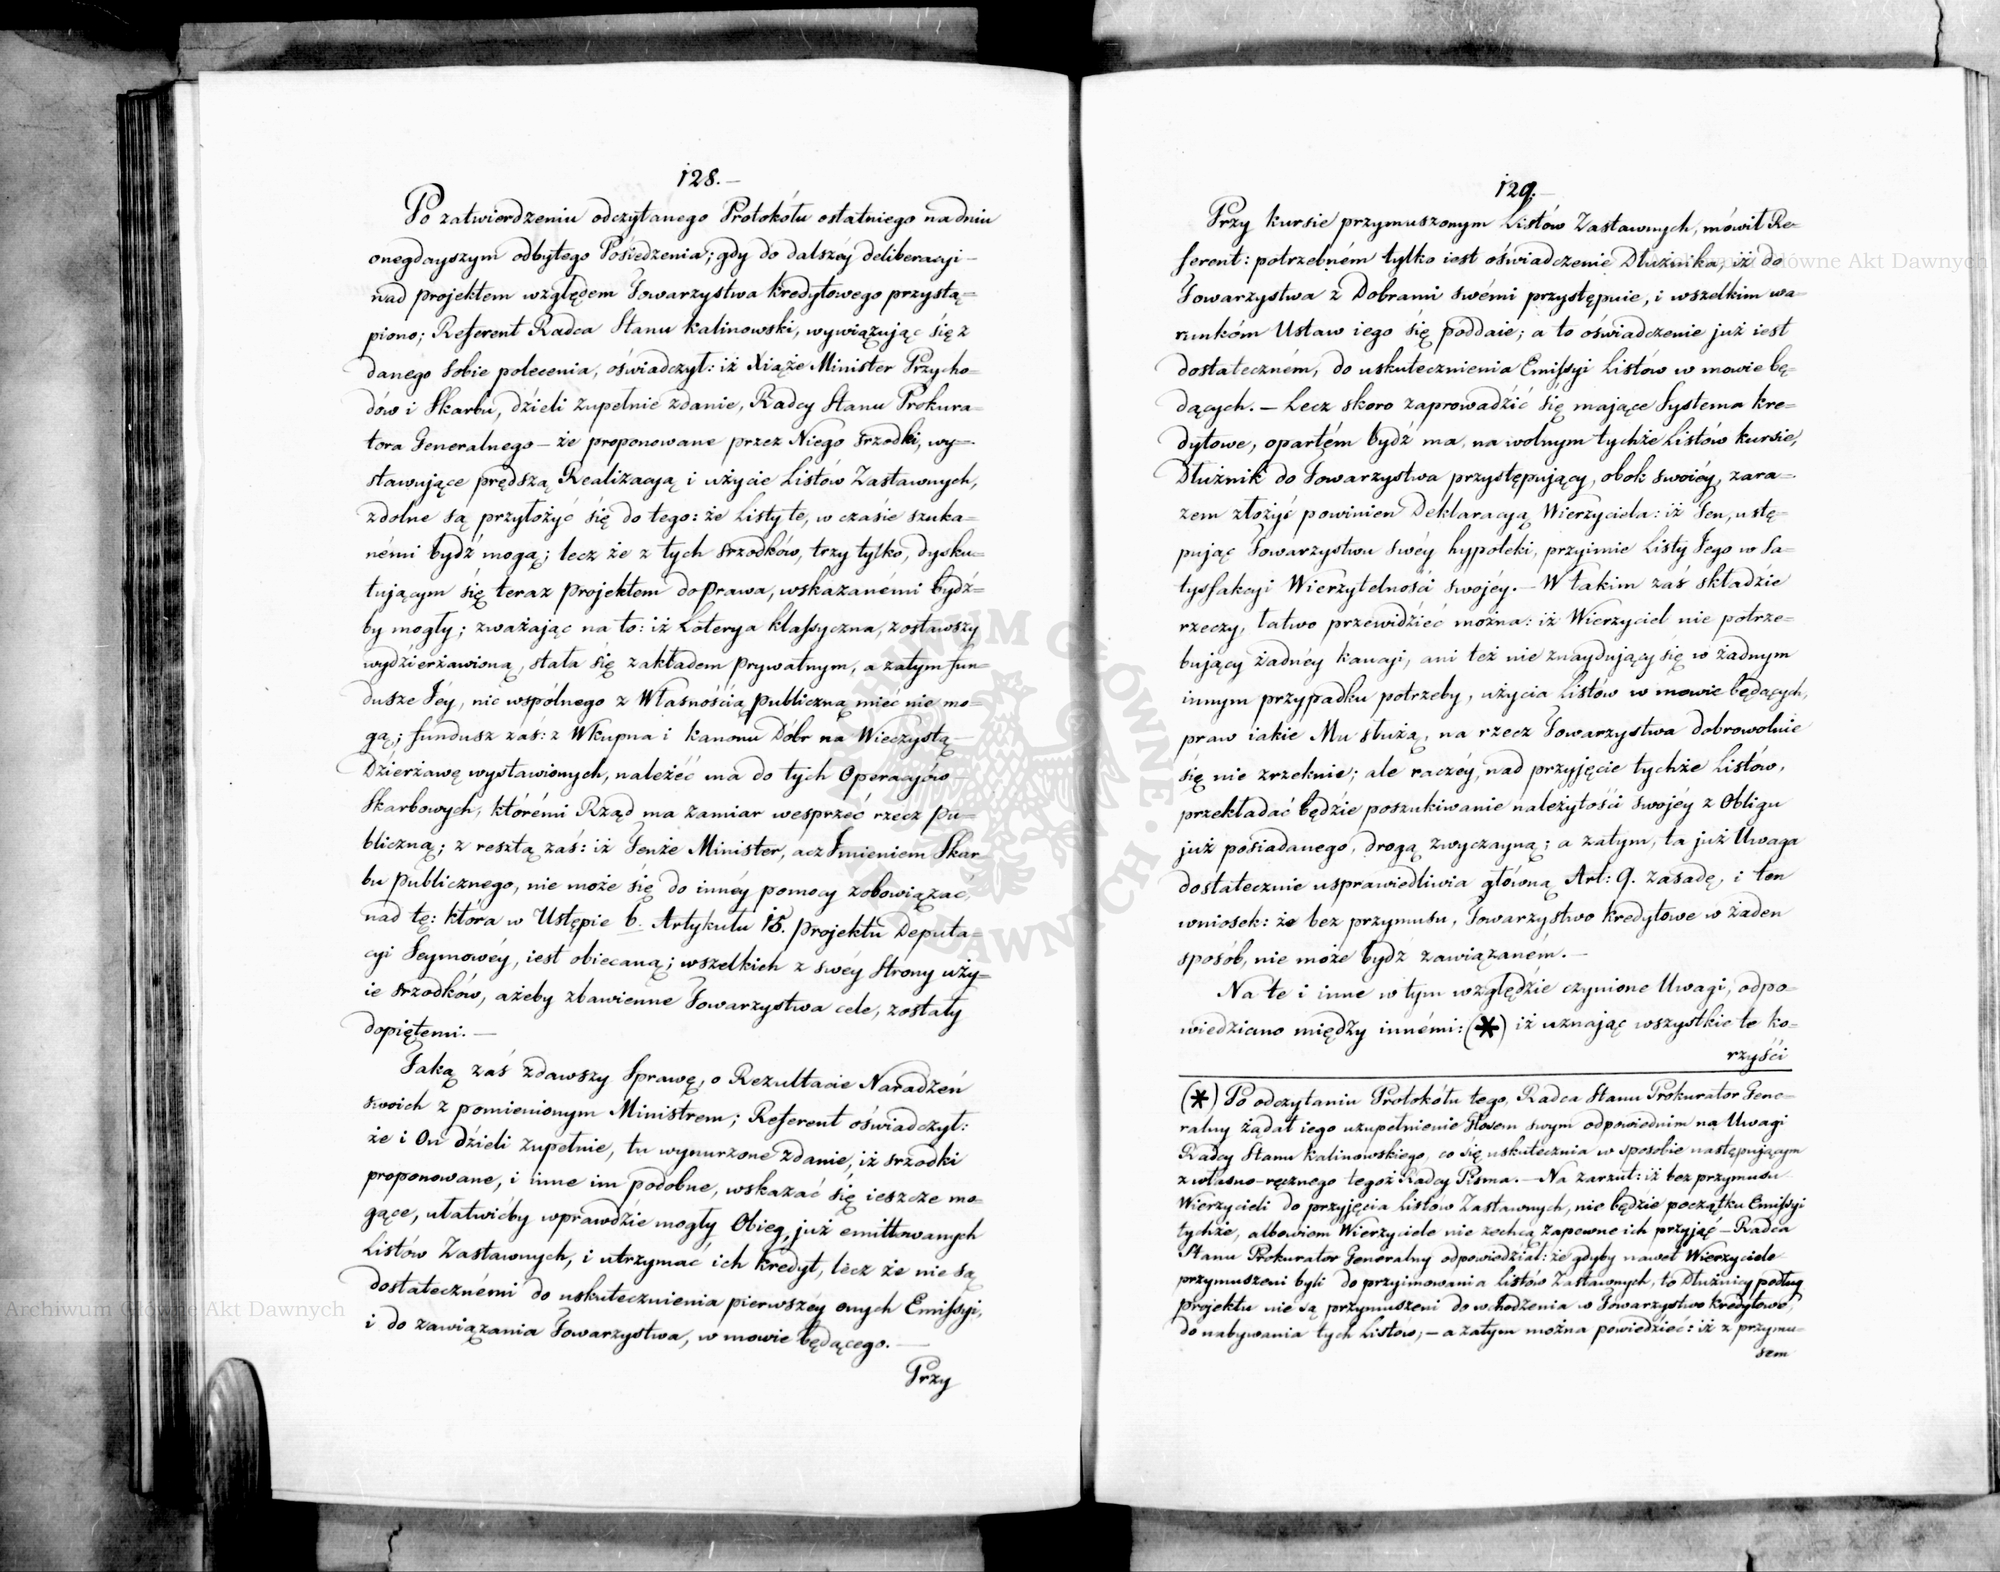 128.—
Po zatwierdzeniu odczytanego Protokółu ostatniego na dniu
onegdayszym odbytego Posiedzenia; gdy do dalszéy deliberacyi –
nad projektem względem Towarzystwa Kredytowego przystą=
piono; Referent Radca Stanu Kalinowski, wywiązując się z
danego Sobie polecenia, oświadczył: iż Xiąże Minister Przycho=
dów i Skarbu, dzieli zupełnie zdanie, Radcy Stanu Prokura=
tora Generalnego – że proponowane przez Niego srzodki, wy=
stawujące prędszą Realizacyą i użycie Listów Zastawnych,
zdolne są przyłożyć się do tego: że Listy te, w czasie szuka=
némi bydź mogą; lecz że z tych srzodków, trzy tylko, dysku=
tującym się teraz projektem do prawa, wskazanémi bydź=
by mogły; zważając na to: iż Loterya klassyczna, zostawszy
wydzierżawioną, stała się zakładem prywatnym, a zatym fun=
dusze Jéy, nic wspólnego z Własnością publiczną mieć nie mo=
gą; fundusz zaś: z Wkupna i kanonu Dóbr na Wieczystą –
Dzierżawę wystawionych, należéć ma do tych Operacyów –
Skarbowych, którémi Rząd ma zamiar wesprzéć rzecz pu=
bliczną; z resztą zaś: iż Tenże Minister, acz Imieniem Skar=
bu publicznego, nie może się do innéy pomocy zobowiązać,
nad tę: która w Ustępie 6. Artykułu 15. projektu Deputa=
cyi Seymowéy, iest obiecaną; wszelkich z swéy Strony uży=
ie srzodków, ażeby zbawienne Towarzystwa cele, zostały
dopiętemi. —
Taką zaś zdawszy Sprawę, o Rezultacie Naradzeń
swoich z pomienionym Ministrem; Referent oświadczył:
że i On dzieli zupełnie, tu wynurzone zdanie, iż srzodki
proponowane, i inne im podobne, wskazać się ieszcze mo=
gące, ułatwićby wprawdzie mogły Obieg, już emittowanych
Listów Zastawnych, i utrzymać ich kredyt, lecz że nie są
dostatecznémi do uskutecznienia pierwszéy onych Emissyi,
i do zawiązania Towarzystwa, w mowie będącego. —
Przy
129.—
Przy kursie przymuszonym Listów Zastawnych, mówił Re=
ferent: potrzebném tylko iest oświadczenie Dłużnika, iż do
Towarzystwa z Dobrami swémi przystępuie, i wszelkim wa=
runkóm Ustaw iego się poddaie; a to oświadczenie już iest
dostateczném, do uskutecznienia Emissyi Listów w mowie bę=
dących. — Lecz skoro zaprowadzić się mające Systema kre=
dytowe, opartém bydź ma, na wolnym tychże Listów kursie,
Dłużnik do Towarzystwa przystępujący, obok swoiéy, zara=
zem złożyć powinien Deklaracyą Wierzyciela: iż Ten, ustę=
pując Towarzystwu swéy hypoteki, przyimie Listy Jego w Sa=
tysfakcyi Wierzytelności swojéy. — W takim zaś składzie
rzeczy, łatwo przewidzieć można: iż Wierzyciel nie potrze=
bujący żadnéy kaucyi, ani też nie znaydujący się w żadnym
innym przypadku potrzeby, użycia Listów w mowie będących,
praw iakie Mu służą, na rzecz Towarzystwa dobrowolnie
się nie zrzeknie; ale raczéy, nad przyjęcie tychże Listów,
przekładać będzie poszukiwanie należytości swojéy z Obligu
już posiadanego, drogą zwyczayną; a zatym, ta już Uwaga
dostatecznie usprawiedliwia główną Art: 9. zasadę, i ten
wniosek: że bez przymusu, Towarzystwo kredytowe w żaden
sposób, nie może bydź zawiązaném. —
Na te i inne w tym względzie czynione Uwagi, odpo=
wiedziano między innémi: (*) iż uznając wszystkie te ko=
rzyści
(*) Po odczytaniu Protokółu tego, Radca Stanu Prokurator Gene=
ralny żądał iego uzupełnienie Głosem swym odpowiednim na Uwagi
Radcy Stanu Kalinowskiego, co się uskutecznia w sposobie następującym
z własno-ręcznego tegoż Radcy Pisma. — Na zarzut: iż bez przymusu
Wierzycieli do przyjęcia Listów Zastawnych, nie będzie początku Emissyi
tychże, albowiem Wierzyciele nie zechcą zapewne ich przyjąć — Radca
Stanu Prokurator Generalny odpowiedział: że gdyby nawet Wierzyciele
przymuszeni byli do przyimowania Listów Zastawnych, to Dłużnicy podług
projektu nie są przymuszeni do wchodzenia w Towarzystwo kredytowe,
do nabywania tych Listów; — a zatym można powiedzieć: iż z przymu=
sem
Archiwum Główne Akt Dawnych